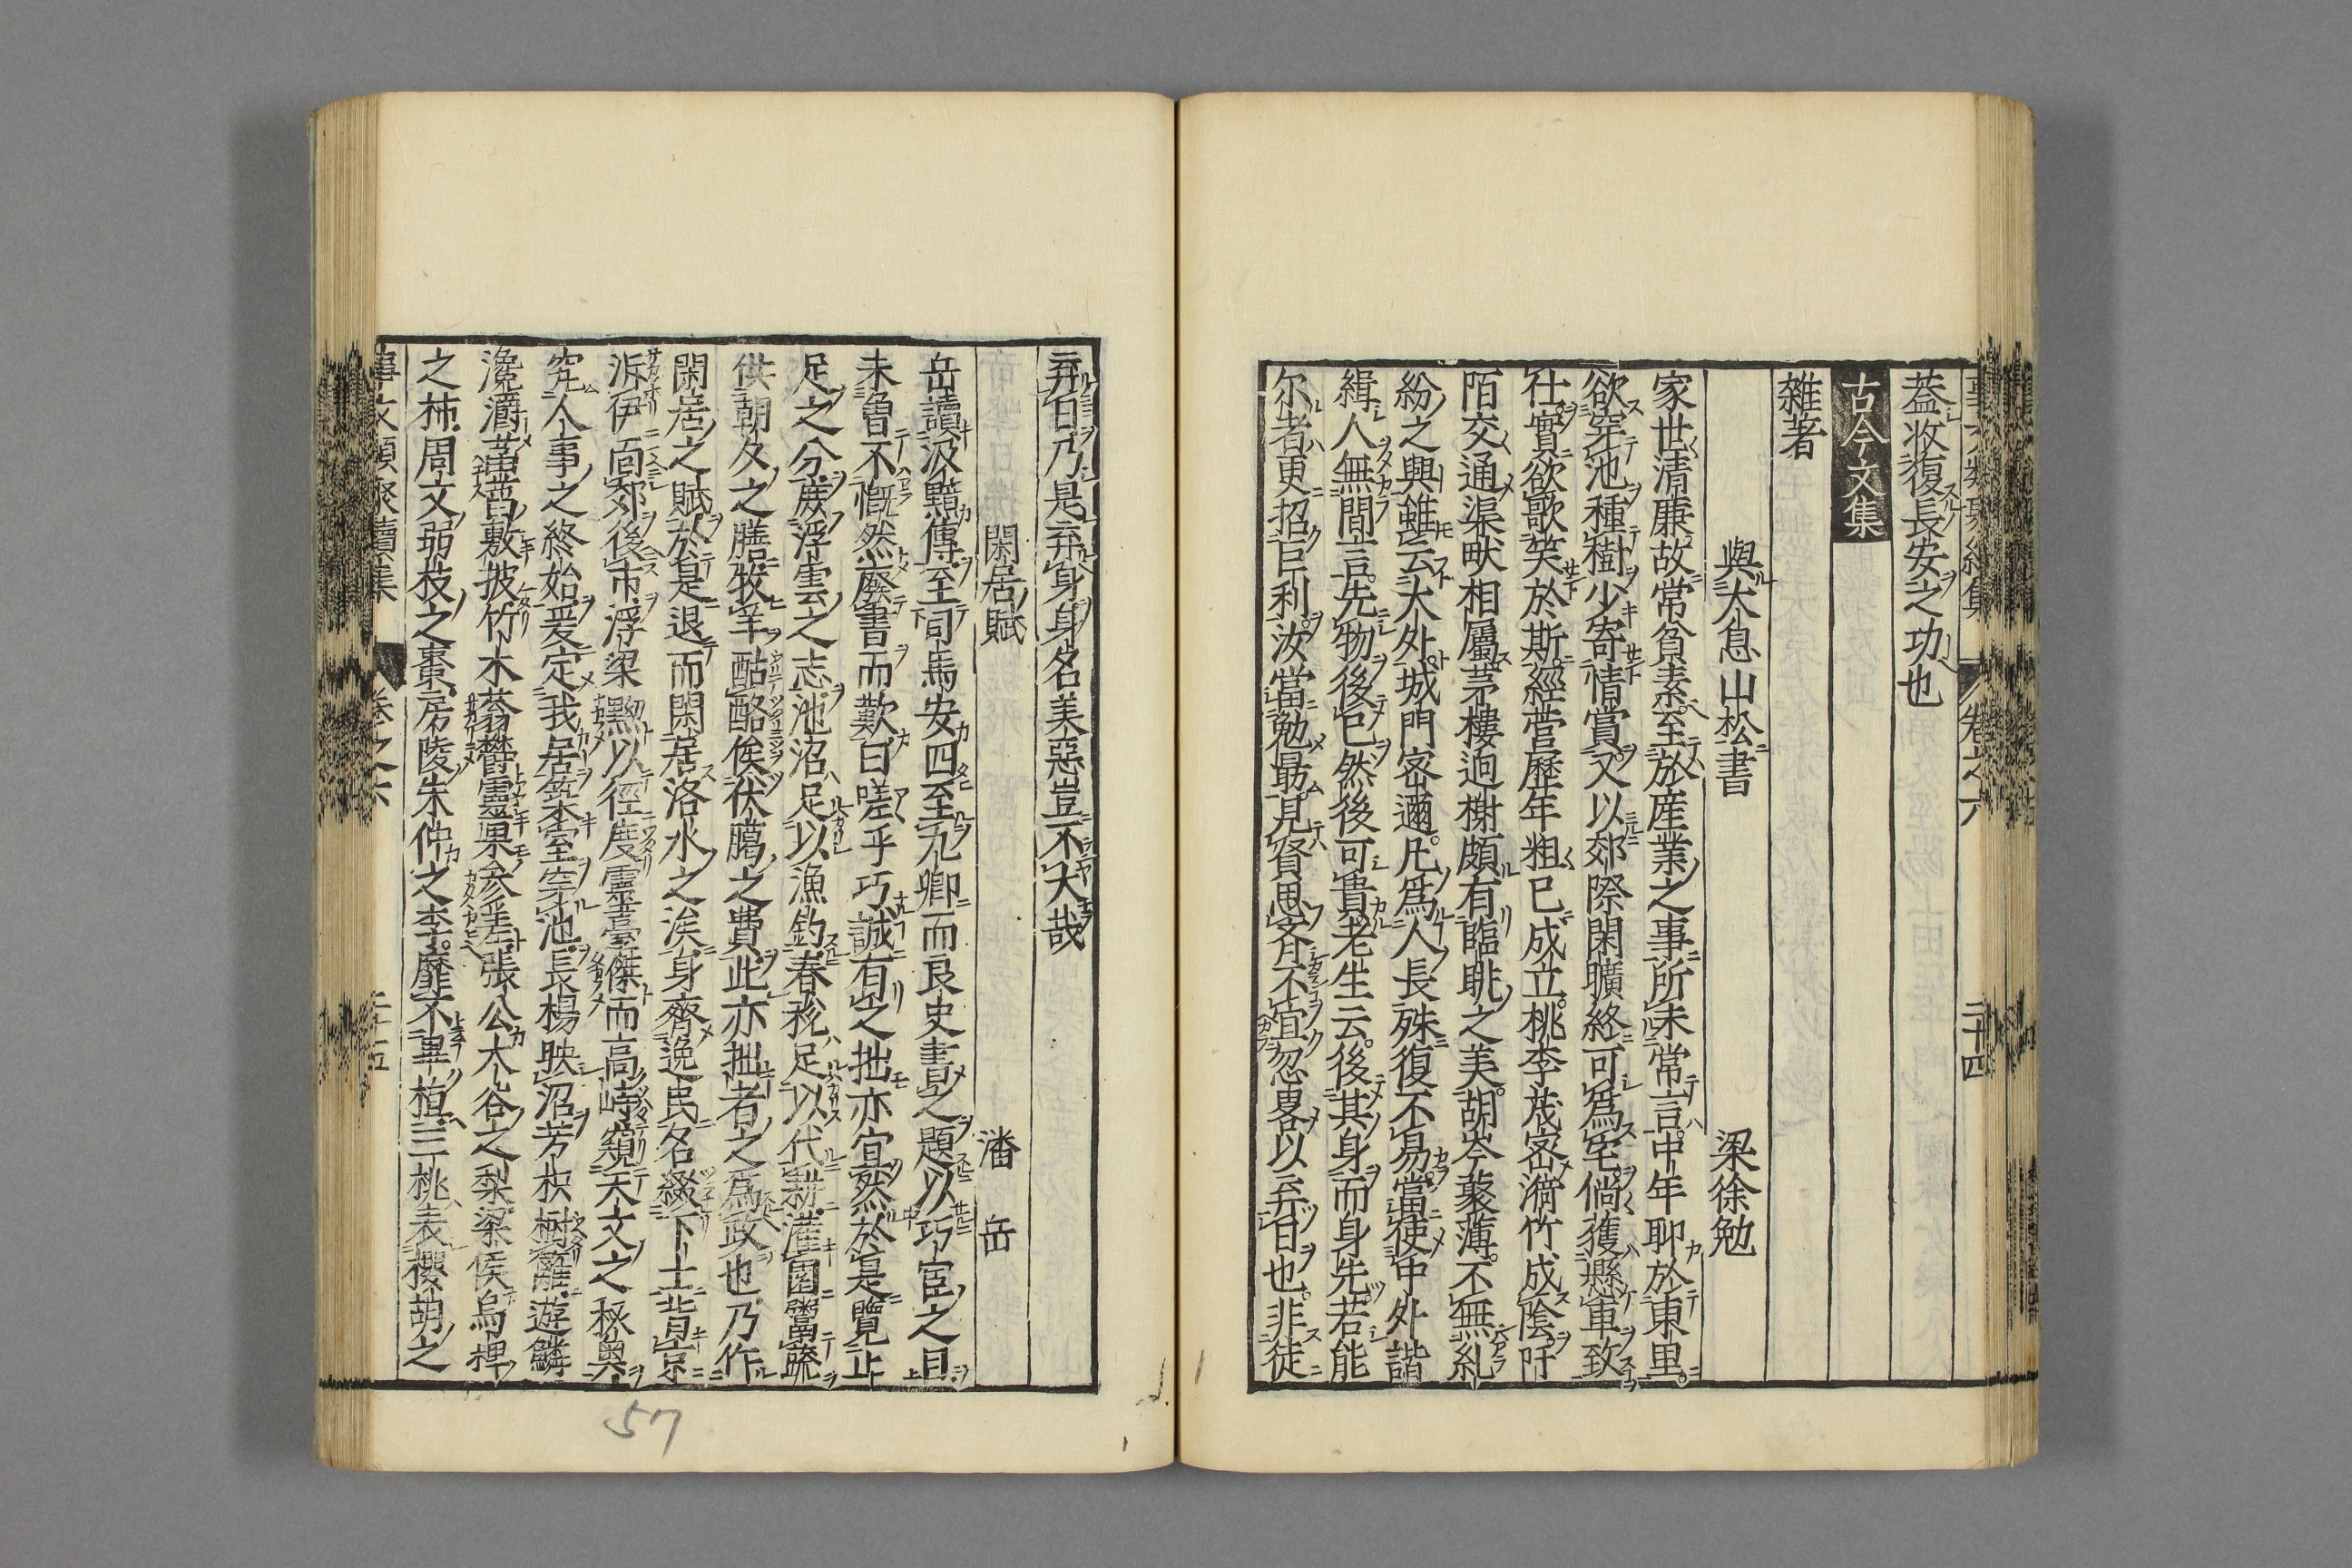 蓋收復長安之功也
古今文集
雜著
與大息山松書　梁徐勉
家世清廉故常貧素至於産業之事所未常言中年聊於東里
欲穿池種樹少寄情賞又以郊際閑曠終可爲宅倘獲懸車致
仕實欲歌笑於斯經營歷年粗已成立桃李茂密滿竹成陰阡
陌交通渠畎相屬茅樓逈榭頗有臨眺之美胡岑蘩薄不無糺
紛之興雖云人外城門密邇凡爲人長殊復不易當使中外諧
緝人無間言先物後已然後可貴老生云後其身而身先若能
尔者更招巨利汝當勉勗見賢思齊不宜忽畧以弃日也非徒
事文類聚續集　卷之六　二十四
弃日乃是弃身身名美惡豈不大哉
閑居賦　潘　岳
岳讀汲黯傳至司馬安四至九卿而良史書之題以巧宦之目
未曽不慨然廢書而歎曰嗟乎巧誠有之拙亦宜然於是覽止
足之分庶浮雲之志池沼足以漁釣春稅足以代耕灌園鬻蔬
供朝夕之膳牧羊酤酪俟伏臈之費此亦拙者之爲政也乃作
閑居之賦於是退而閑居洛水之涘身齊逸民名綴下士背京
泝伊面郊後市浮梁黝以徑度靈臺傑而高峙窺天文之秘奥
究人事之終始爰定我居築室穿池長楊映沼芳枳樹籬遊鱗
瀺灂菡萏敷披竹木蓊欝靈果參差張公大谷之梨梁侯烏椑
之柿周文弱枝之棗房陵朱仲之李靡不畢植三桃表櫻胡之
事文類聚續集　卷之六　二十五
57